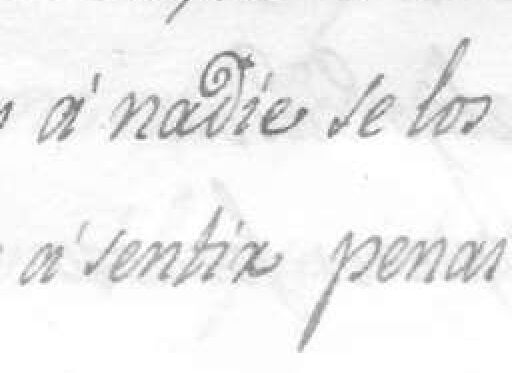 á nadie se los
á sentir penas